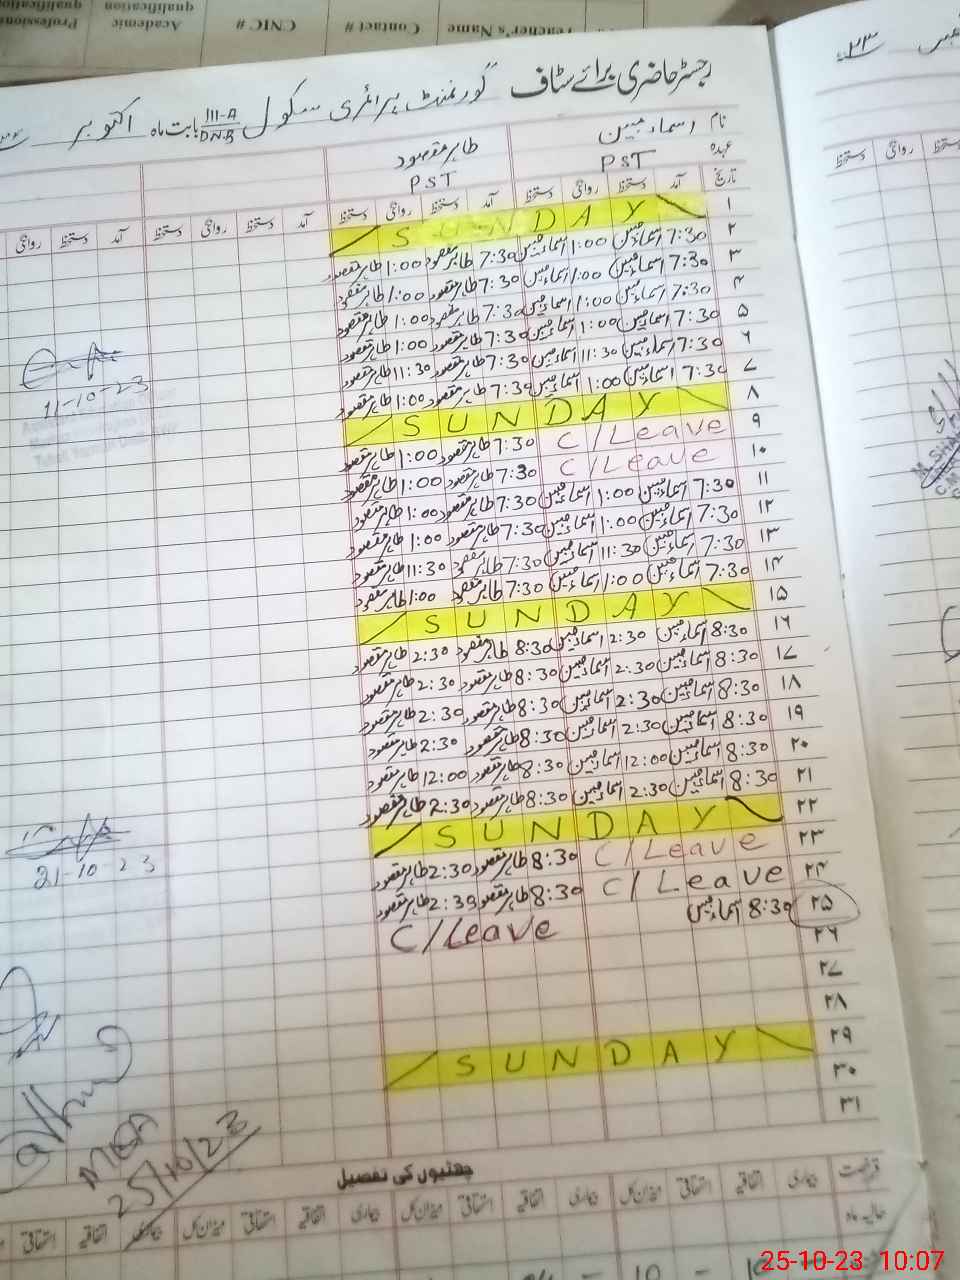 Teacher's Name Contact # CNIC # Academic qualification Professional qualification
رجسٹر حاضری برائے سٹاف گورنمنٹ پرائمری سکول III-A/DNB بابت ماہ اکتوبر
نام اسماء مبین طاہر مقصود
عہدہ PST PST
تاریخ آمد دستخط روانگی دستخط آمد دستخط روانگی دستخط آمد دستخط روانگی دستخط آمد دستخط روانگی
۱ SUNDAY
۲ 7:30 اسماء مبین 1:00 اسماء مبین 7:30 طاہر مقصود 1:00 طاہر مقصود
۳ 7:30 اسماء مبین 1:00 اسماء مبین 7:30 طاہر مقصود 1:00 طاہر مقصود
۴ 7:30 اسماء مبین 1:00 اسماء مبین 7:30 طاہر مقصود 1:00 طاہر مقصود
۵ 7:30 اسماء مبین 1:00 اسماء مبین 7:30 طاہر مقصود 1:00 طاہر مقصود
۶ 7:30 اسماء مبین 11:30 اسماء مبین 7:30 طاہر مقصود 11:30 طاہر مقصود
۷ 7:30 اسماء مبین 1:00 اسماء مبین 7:30 طاہر مقصود 1:00 طاہر مقصود
۸ SUNDAY
۹ C/Leave 7:30 طاہر مقصود 1:00 طاہر مقصود
۱۰ C/Leave 7:30 طاہر مقصود 1:00 طاہر مقصود
۱۱ 7:30 اسماء مبین 1:00 اسماء مبین 7:30 طاہر مقصود 1:00 طاہر مقصود
۱۲ 7:30 اسماء مبین 1:00 اسماء مبین 7:30 طاہر مقصود 1:00 طاہر مقصود
۱۳ 7:30 اسماء مبین 11:30 اسماء مبین 7:30 طاہر مقصود 11:30 طاہر مقصود
۱۴ 7:30 اسماء مبین 1:00 اسماء مبین 7:30 طاہر مقصود 1:00 طاہر مقصود
۱۵ SUNDAY
۱۶ 8:30 اسماء مبین 2:30 اسماء مبین 8:30 طاہر مقصود 2:30 طاہر مقصود
۱۷ 8:30 اسماء مبین 2:30 اسماء مبین 8:30 طاہر مقصود 2:30 طاہر مقصود
۱۸ 8:30 اسماء مبین 2:30 اسماء مبین 8:30 طاہر مقصود 2:30 طاہر مقصود
۱۹ 8:30 اسماء مبین 2:30 اسماء مبین 8:30 طاہر مقصود 2:30 طاہر مقصود
۲۰ 8:30 اسماء مبین 12:00 اسماء مبین 8:30 طاہر مقصود 12:00 طاہر مقصود
۲۱ 8:30 اسماء مبین 2:30 اسماء مبین 8:30 طاہر مقصود 2:30 طاہر مقصود
۲۲ SUNDAY
۲۳ C/Leave 8:30 طاہر مقصود 2:30 طاہر مقصود
۲۴ C/Leave 8:30 طاہر مقصود 2:39 طاہر مقصود
۲۵ 8:30 اسماء مبین C/Leave
۲۶
۲۷
۲۸
۲۹ SUNDAY
۳۰
۳۱
11-10-23
21-10-23
MEA
25/10/23
چھٹیوں کی تفصیل
بیماری اتفاقیہ استحقاقی میزان کل بیماری اتفاقیہ استحقاقی میزان کل بیماری اتفاقیہ استحقاقی میزان کل بیماری اتفاقیہ استحقاقی
حالیہ ماہ
۲۳
دستخط روانگی
25-10-23 10:07